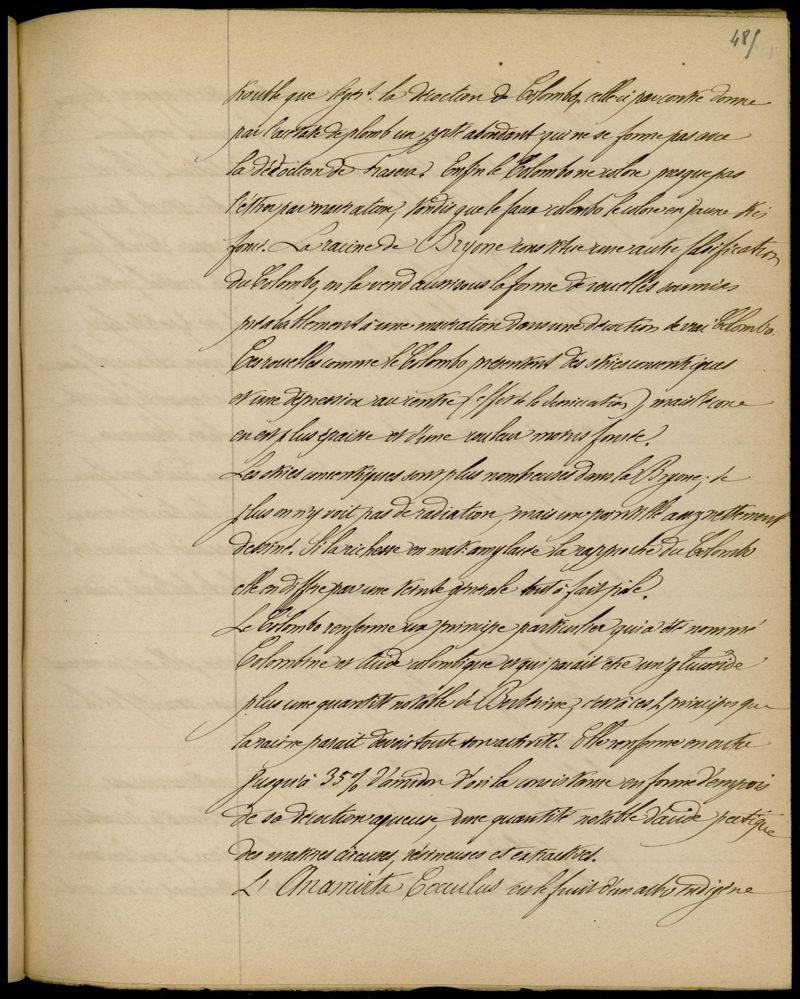 485
trouble que légért. la décoction de Colombo, celle ci par contre donne
par l'acétate de plomb un ppté abondant qui ne se forme pas avec
la décoction de Frasera. Enfin le Colombo ne colore presque pas
l'éther par macération, tandis que le faux colombo le colore en jaune très
foncé. La racine de Bryone constitue une autre falsification
du Colombo, on la vend aussi sous la forme de rouelles soumises
probablement à une macération dans une décoction de vrai Colombo.
Ces rouelles comme le Colombo présentent des stries concentriques
et une dépression au centre (effet de la dessication), mais l'écorce
en est plus épaisse et d'une couleur moins foncée.
Les stries concentriques sont plus nombreuses dans la Bryone; de
plus on n'y voit pas de radiation, mais un pointillé assez nettement
dessiné. Si la richesse en mat. amylacée la rapproche du Colombo
elle en diffère par une teinte générale tout à fait pâle.
Le Colombo renferme un principe particulier qui a été nommé
Colombine et acide colombique et qui paraît être un glucoside
plus une quantité notable de Berbérine, c'est à ces principes que
la racine parait devoir toute son activité. Elle renferme en outre
jusqu'à 35% d'amidon d'où la consistance en forme d'empois
de sa décoction aqueuse, une quantité notable d'acide pectique
des matières cireuses, résineuses et extractives.
L' Anamirta Cocculus est le fruit d'un arbre indigène